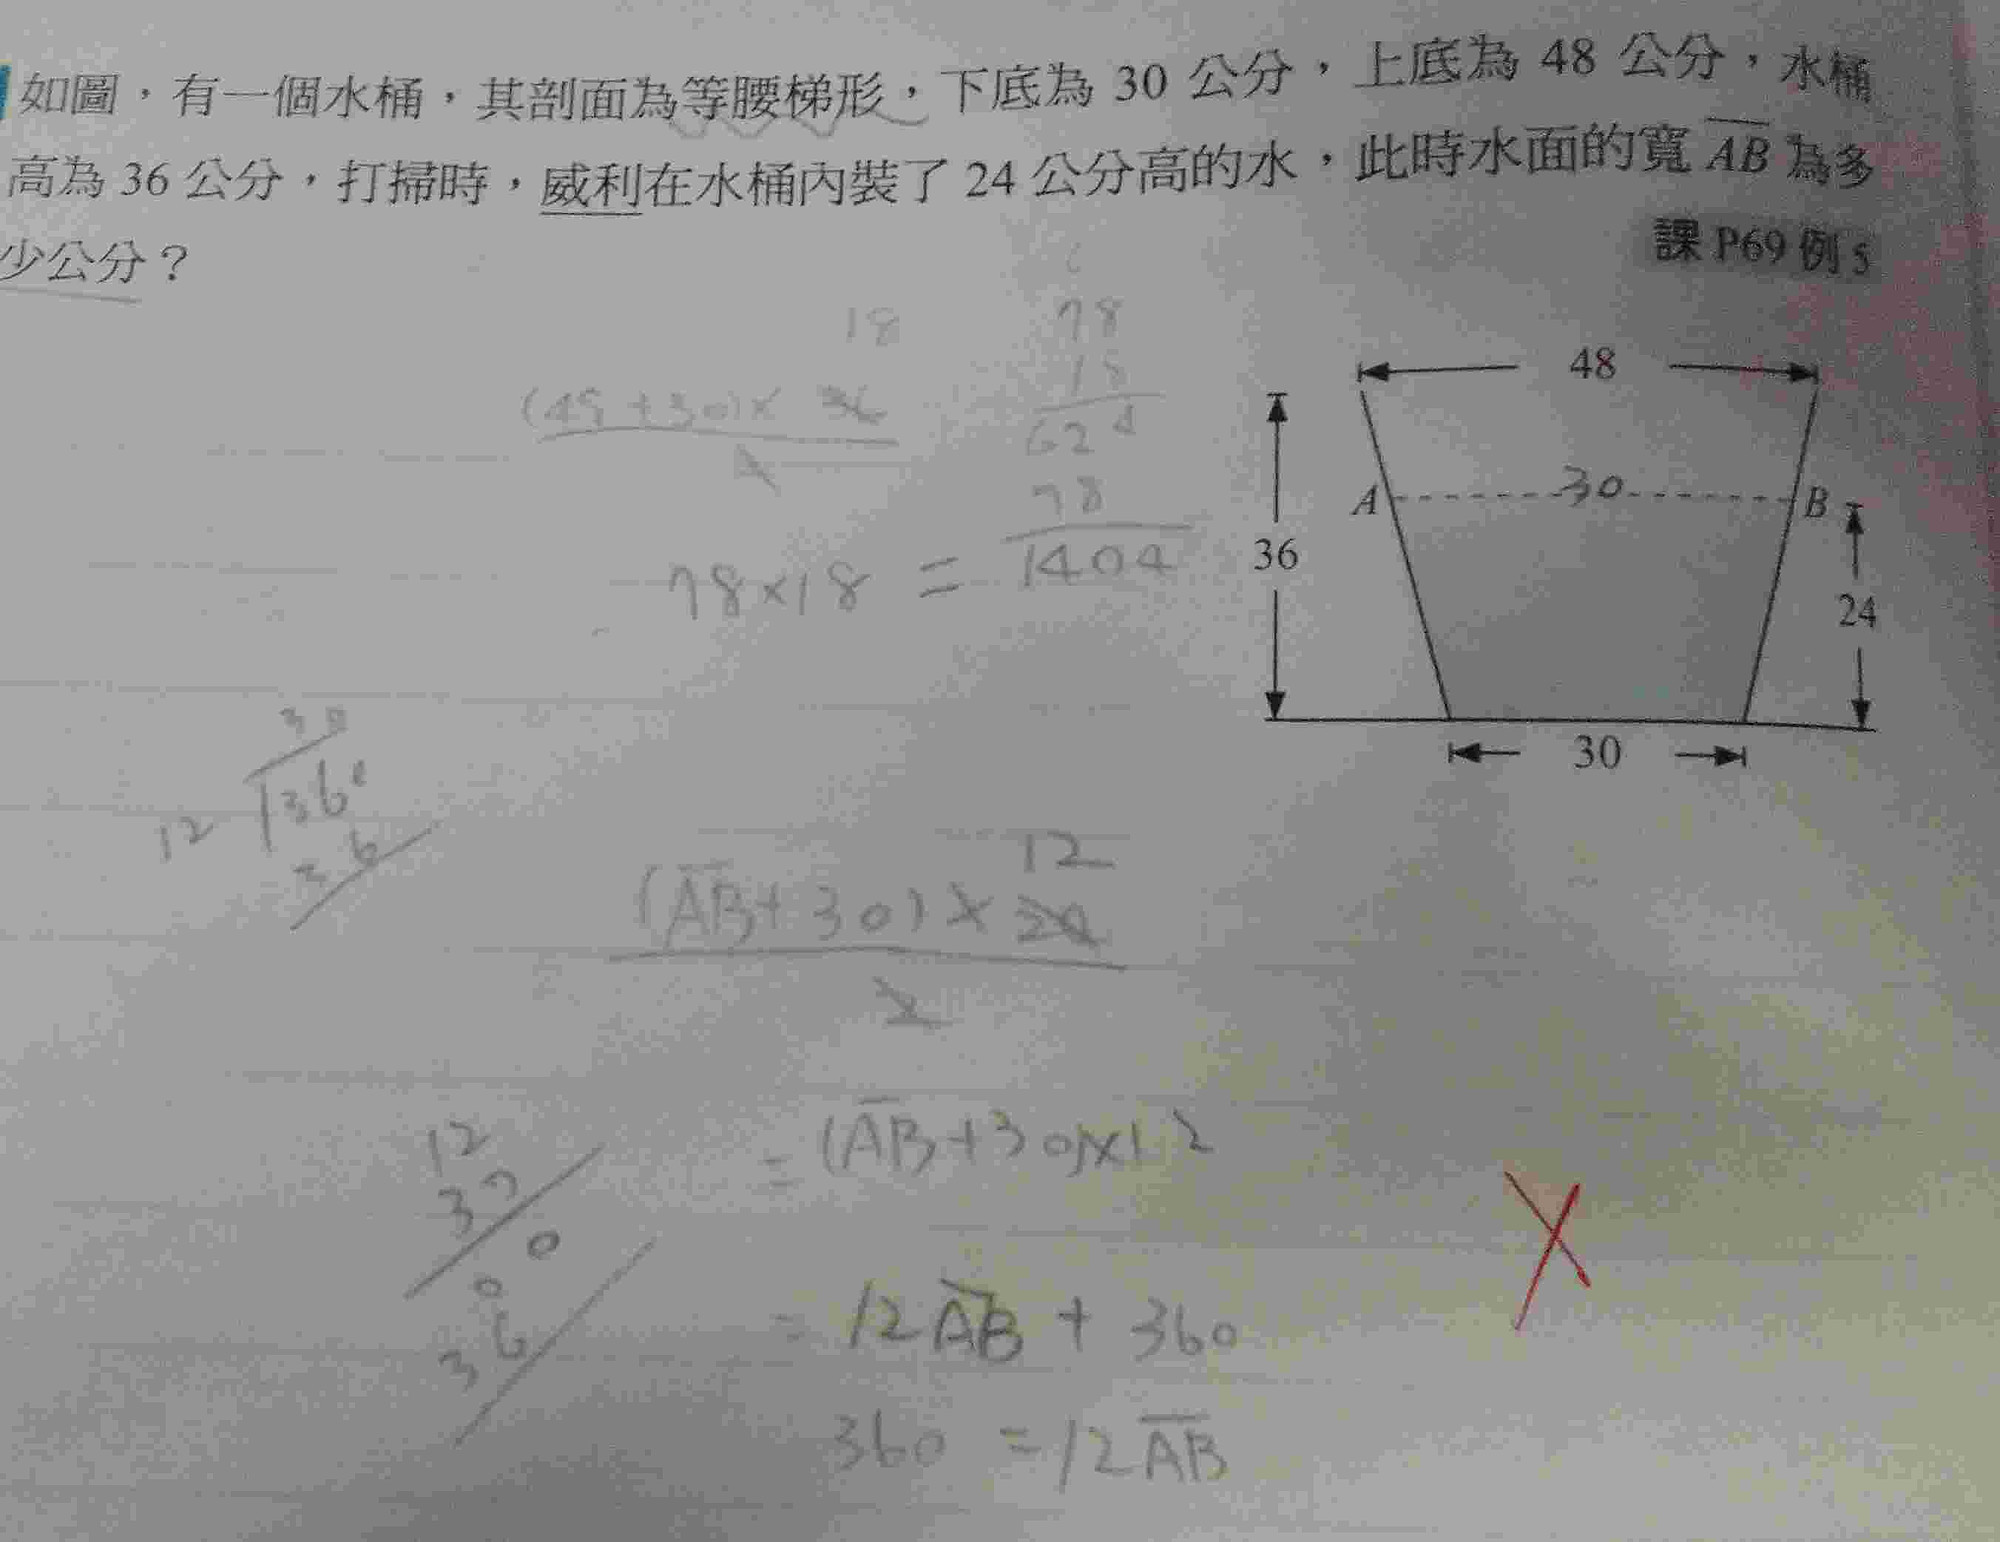 如圖，有一個水桶，其剖面為等腰梯形，下底為 30 公分，上底為 48 公分，水桶
高為 36 公分，打掃時，威利在水桶內裝了 24 公分高的水，此時水面的寬 AB 為多
少公分？
課 P69 例 5
18
(48+30)×36
78
18
624
78
1404
78×18 =
48
A
30
B
36
24
30
30
12
360
36
12
(AB+30)×24
2
= (AB+30)×12
12
30
00
36
= 12AB + 360
360 = 12AB